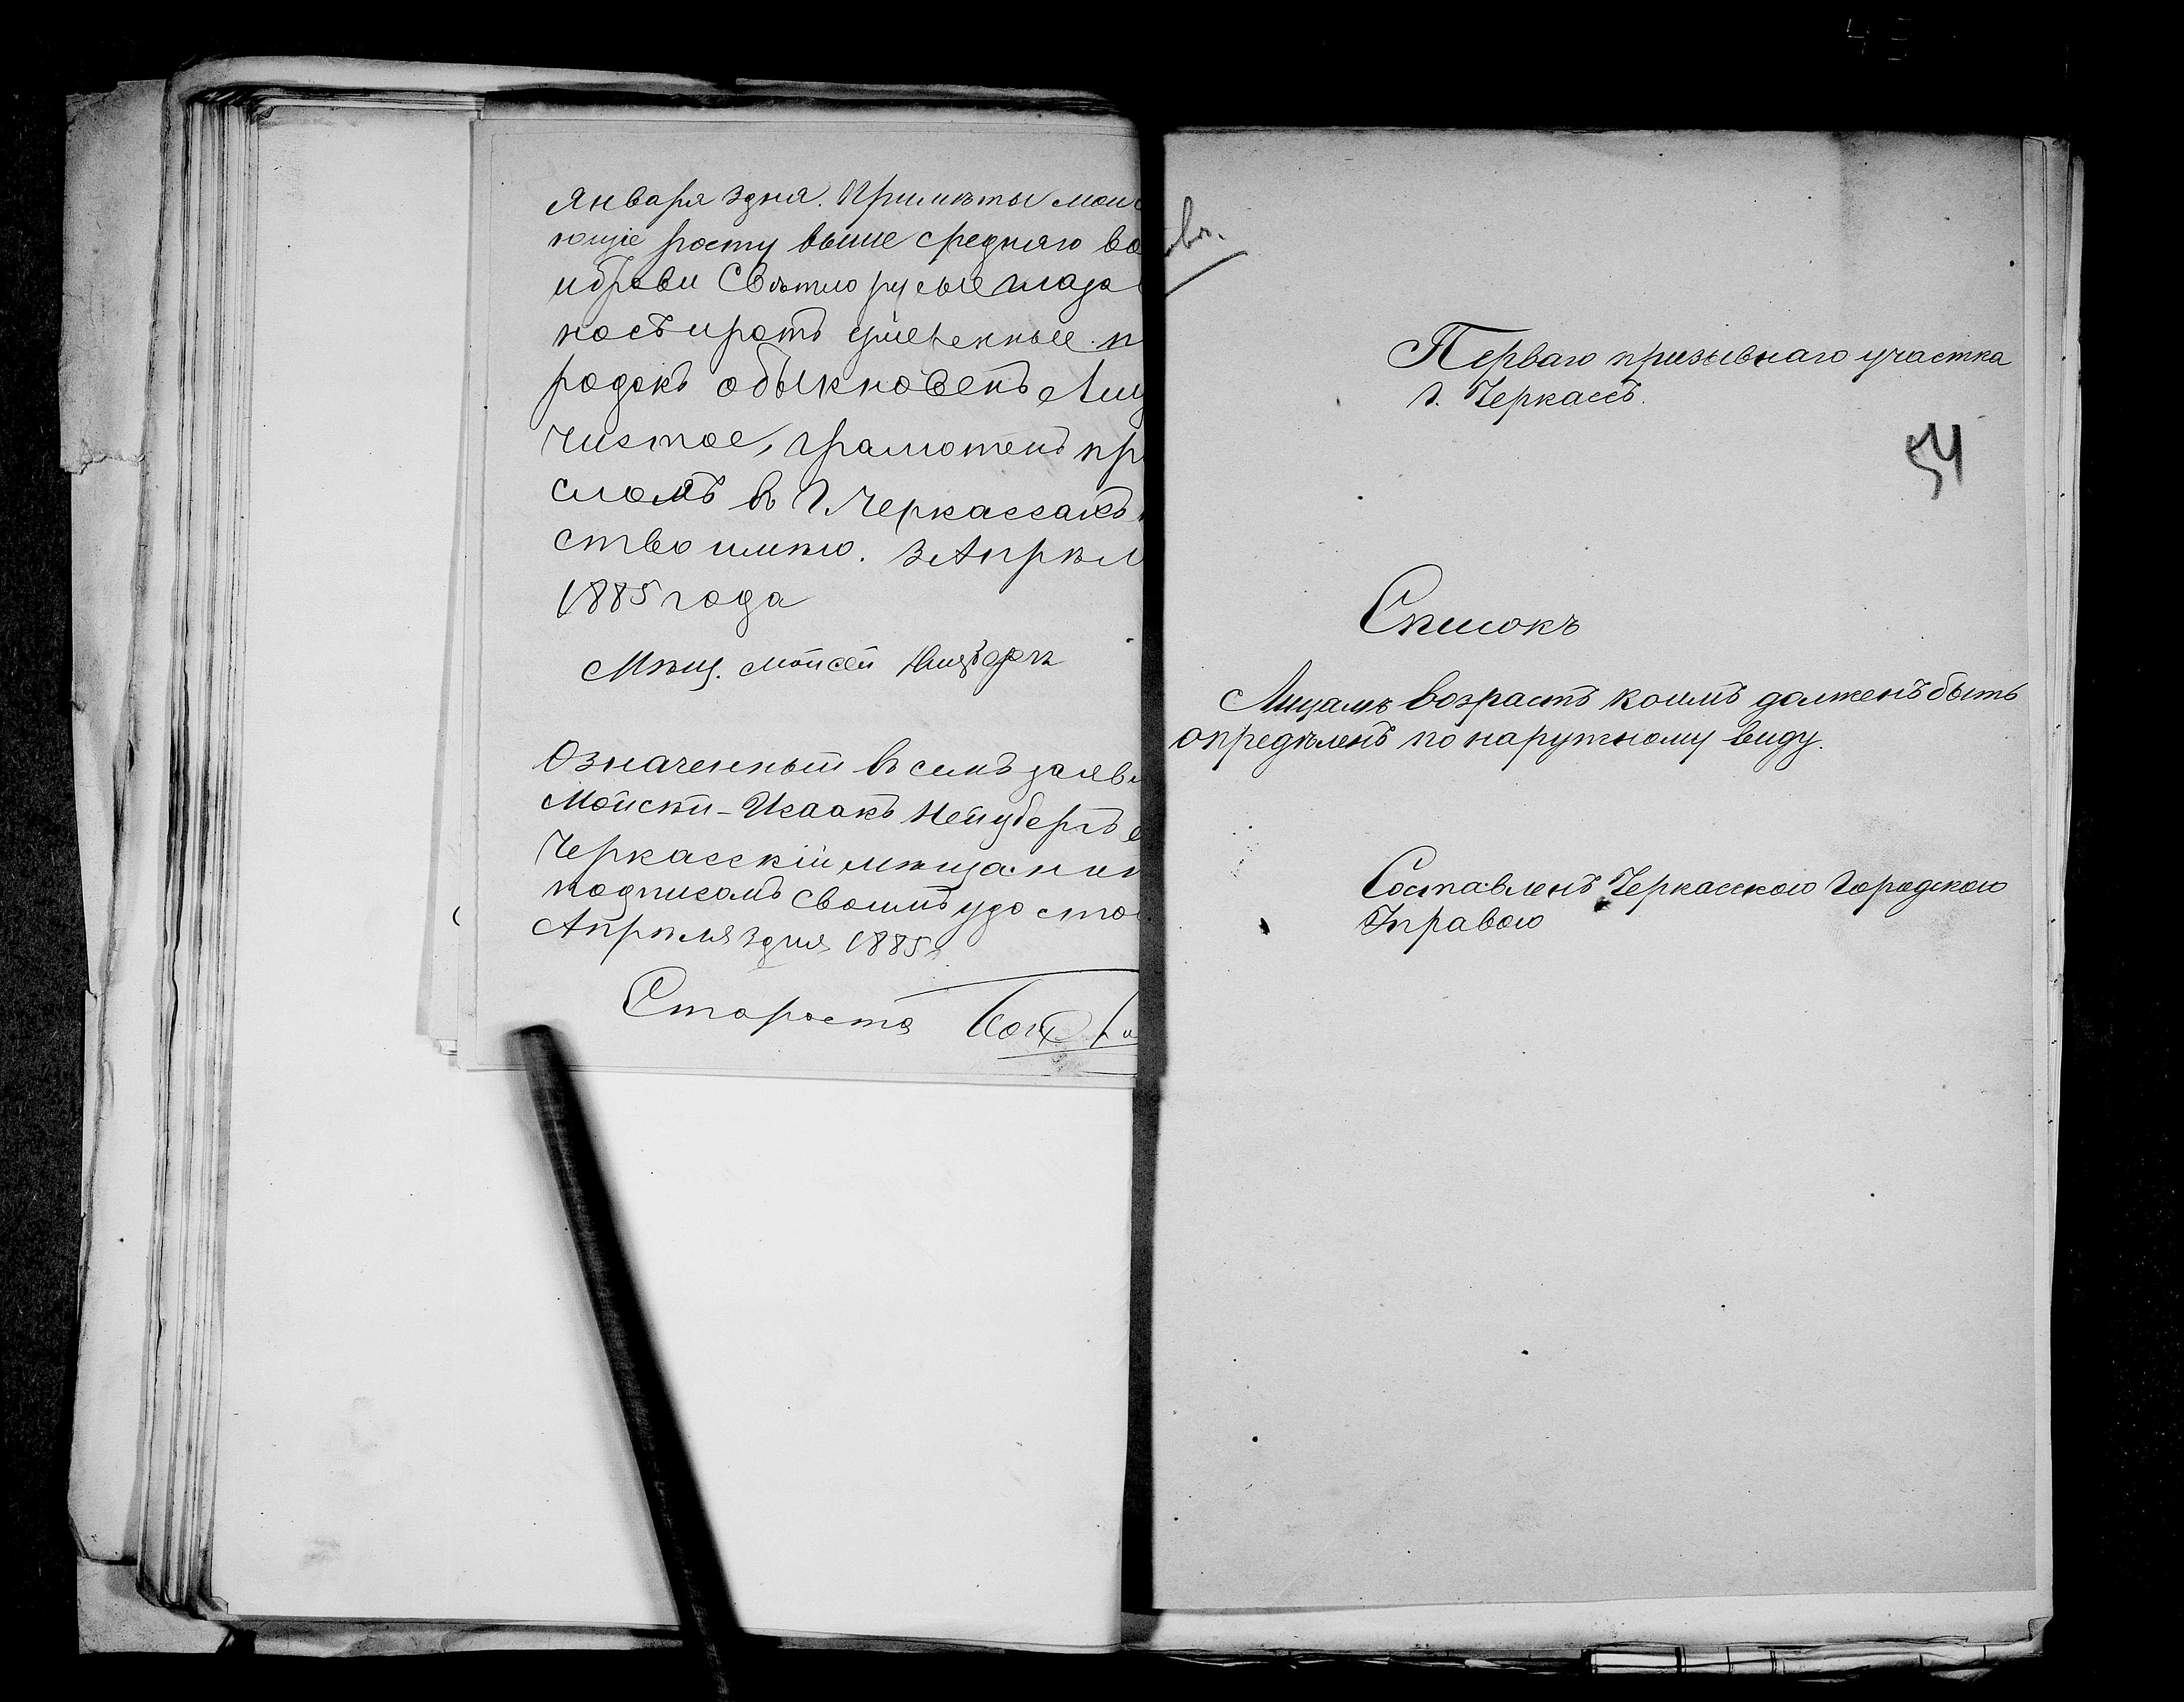 Января 3 дня. Примѣты мои с
ющіе росту выше средняго во
и брови Свѣтло русые глаза
носъ и ротъ умеренные п
родокъ обыкновенъ Лиц
чистое, грамотенъ пр
сломъ въ Г. Черкассахъ
ство имѣю. 3 Апрѣл
1885 года
Мѣщ. Мойсей
Означенный въ семъ заяв
Мойсѣй-Исаакъ Нейубергъ е
Черкасскій мѣщанин
подписомъ своимъ удосто
Апрѣля 3 дня 1885 г.
Староста
Перваго призывнаго участка
г. Черкассъ.
54
Списокъ
Лицамъ возрастъ коимъ долженъ быть
опредѣленъ по наружному виду.
Составленъ Черкасскою Городскою
Управою